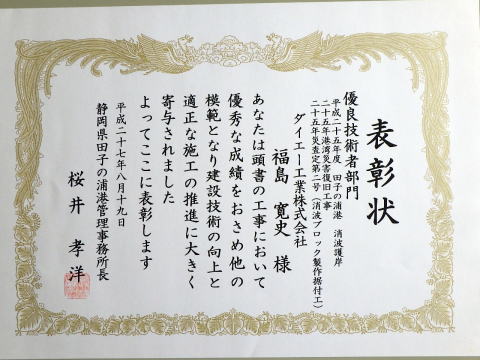 表彰状
優良技術者部門
平成二十五年度 田子の浦港 消波護岸
二十五年港湾災害復旧工事
二十五年災査定第二号(消波ブロック製作据付工)
ダイエー工業株式会社
福島 寛史 様
あなたは頭書の工事において
優秀な成績をおさめ他の
模範となり建設技術の向上と
適正な施工の推進に大きく
寄与されました
よってここに表彰します
平成二十七年八月十九日
静岡県田子の浦港管理事務所長
桜井 孝洋